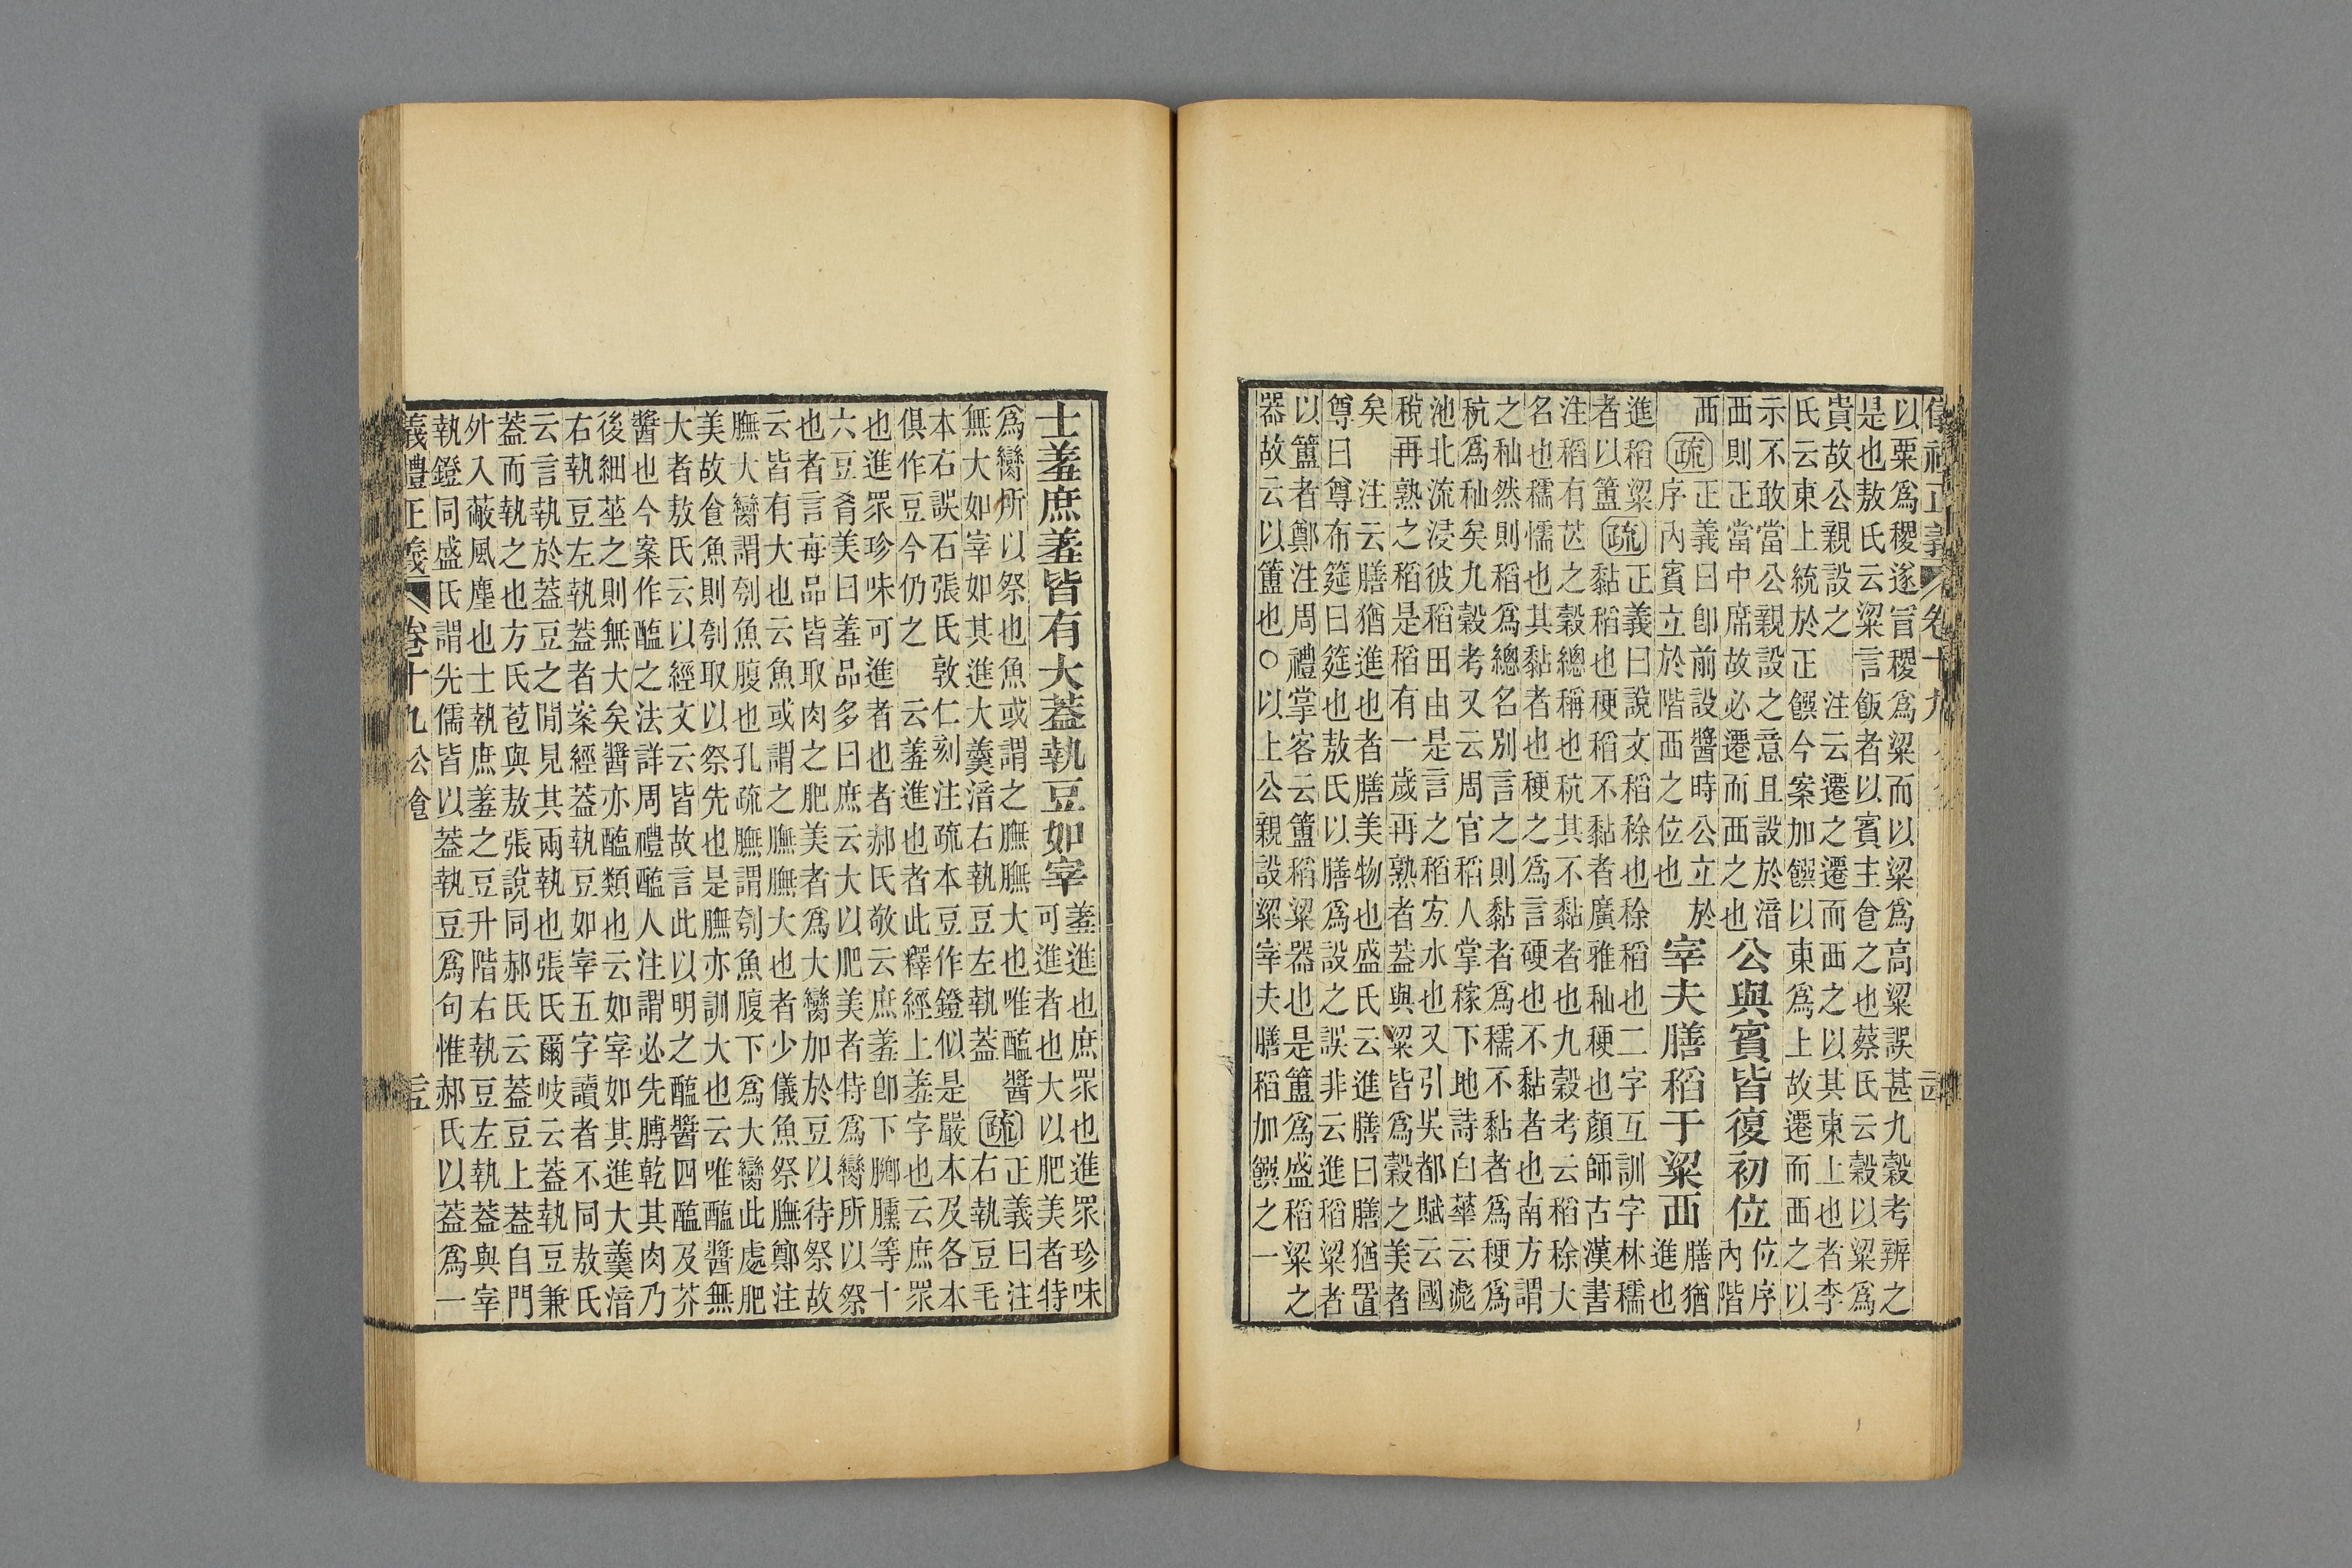 儀禮正義 卷十九
以粟爲稷遂盲稷爲粱而以粱爲高粱誤甚九穀考辨之
是也敖氏云粱言飯者以賓主食之也蔡氏云穀以粱爲
貴故公親設之 注云遷之遷而西之以其東上也者李
氏云東上統於正饌今案加饌以東爲上故遷而西之以
示不敢當公親設之意且設於湆
西則正當中席故必遷而西之也
公與賓皆復初位 位序內階
西 疏 正義曰卽前設醬時公立於
序內賓立於階西之位也
宰夫膳稻于粱西 膳猶進也
進稻粱者以簠 疏 正義曰說文稻稌也稌稻也二字互訓字林穤
黏稻也稉稻不黏者廣雅秈稉也顏師古漢書
注稻有芒之穀總稱也秔其不黏者也九穀考云稻稌大
名也穤懦也其黏者也稉之爲言硬也不黏者也南方謂
之秈然則稻爲總名別言之則黏者爲穤不黏者爲稉爲
秔爲秈矣九穀考又云周官稻人掌稼下地詩白華云滮
池北流浸彼稻田由是言之稻宜水也又引吳都賦云國
稅再熟之稻是稻有一歲再熟者蓋與粱皆爲穀之美者
矣 注云膳猶進也者膳美物也盛氏云進膳曰膳猶置
尊曰尊布筵曰筵也敖氏以膳爲設之誤非云進稻粱者
以簠者鄭注周禮掌客云簠稻粱器也是簠爲盛稻粱之
器故云以簠也○以上公親設粱宰夫膳稻加饌之一
士羞庶羞皆有大蓋執豆如宰 羞進也庶眾也進眾珍味
可進者也大以肥美者特
爲臠所以祭也魚或謂之膴膴大也唯醢醬
無大如宰如其進大羹湆右執豆左執蓋
疏 正義曰注右執豆毛
本右誤石張氏敦仁刻注疏本豆作鐙似是嚴本及各本
俱作豆今仍之 云羞進也者此釋經上羞字也云庶眾
也進眾珍味可進者也者郝氏敬云庶羞卽下膷臐等十
六豆肴美曰羞品多曰庶云大以肥美者特爲臠所以祭
也者言每品皆取肉之肥美者爲大臠加於豆以待祭故
云皆有大也云魚或謂之膴膴大也者少儀魚祭膴鄭注
膴大臠謂刳魚腹也孔疏膴謂刳魚腹下爲大臠此處肥
美故食魚則刳取以祭先也是膴亦訓大也云唯醢醬無
大者敖氏云以經文云皆故言此以明之醢醬四醢及芥
醬也今案作醢之法詳周禮醢人注謂必先膊乾其肉乃
後細莝之則無大矣醬亦醢類也云如宰如其進大羹湆
右執豆左執蓋者案經蓋執豆如宰五字讀者不同敖氏
云言執於蓋豆之閒見其兩執也張氏爾岐云蓋執豆兼
蓋而執之也方氏苞與敖張說同郝氏云蓋豆上蓋自門
外入蔽風塵也士執庶羞之豆升階右執豆左執蓋與宰
執鐙同盛氏謂先儒皆以蓋執豆爲句惟郝氏以蓋爲一
義禮正義 卷十九 公食